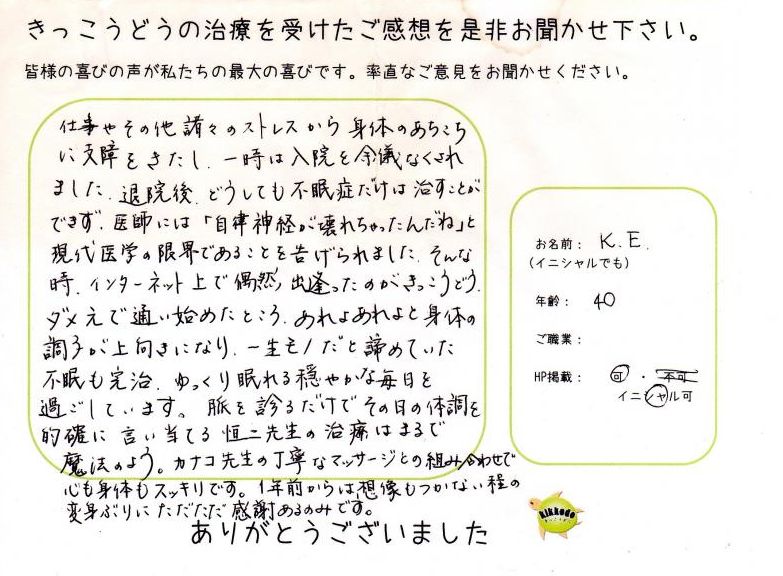 きっこうどうの治療を受けたご感想を是非お聞かせ下さい。
皆様の喜びの声が私たちの最大の喜びです。率直なご意見をお聞かせください。
仕事やその他諸々のストレスから身体のあちこち
に支障をきたし、一時は入院を余儀なくされ
ました。退院後、どうしても不眠症だけは治すことが
できず、医師には「自律神経が壊れちゃったんだね」と
現代医学の限界であることを告げられました。そんな
時、インターネット上で偶然出逢ったのがきっこうどう。
ダメ元で通い始めたところ、あれよあれよと身体の
調子が上向きになり、一生モノだと諦めていた
不眠も完治、ゆっくり眠れる穏やかな毎日を
過ごしています。脈を診るだけでその日の体調を
的確に言い当てる恒二先生の治療はまるで
魔法のよう。カナコ先生の丁寧なマッサージとの組み合わせで
心も身体もスッキリです。1年前からは想像もつかない程の
変身ぶりにただただ感謝あるのみです。
ありがとうございました
お名前： K.E.
(イニシャルでも)
年齢： 40
ご職業：
HP掲載： 可 ・ 不可
イニシャル可
kikkodo
きっこうどう